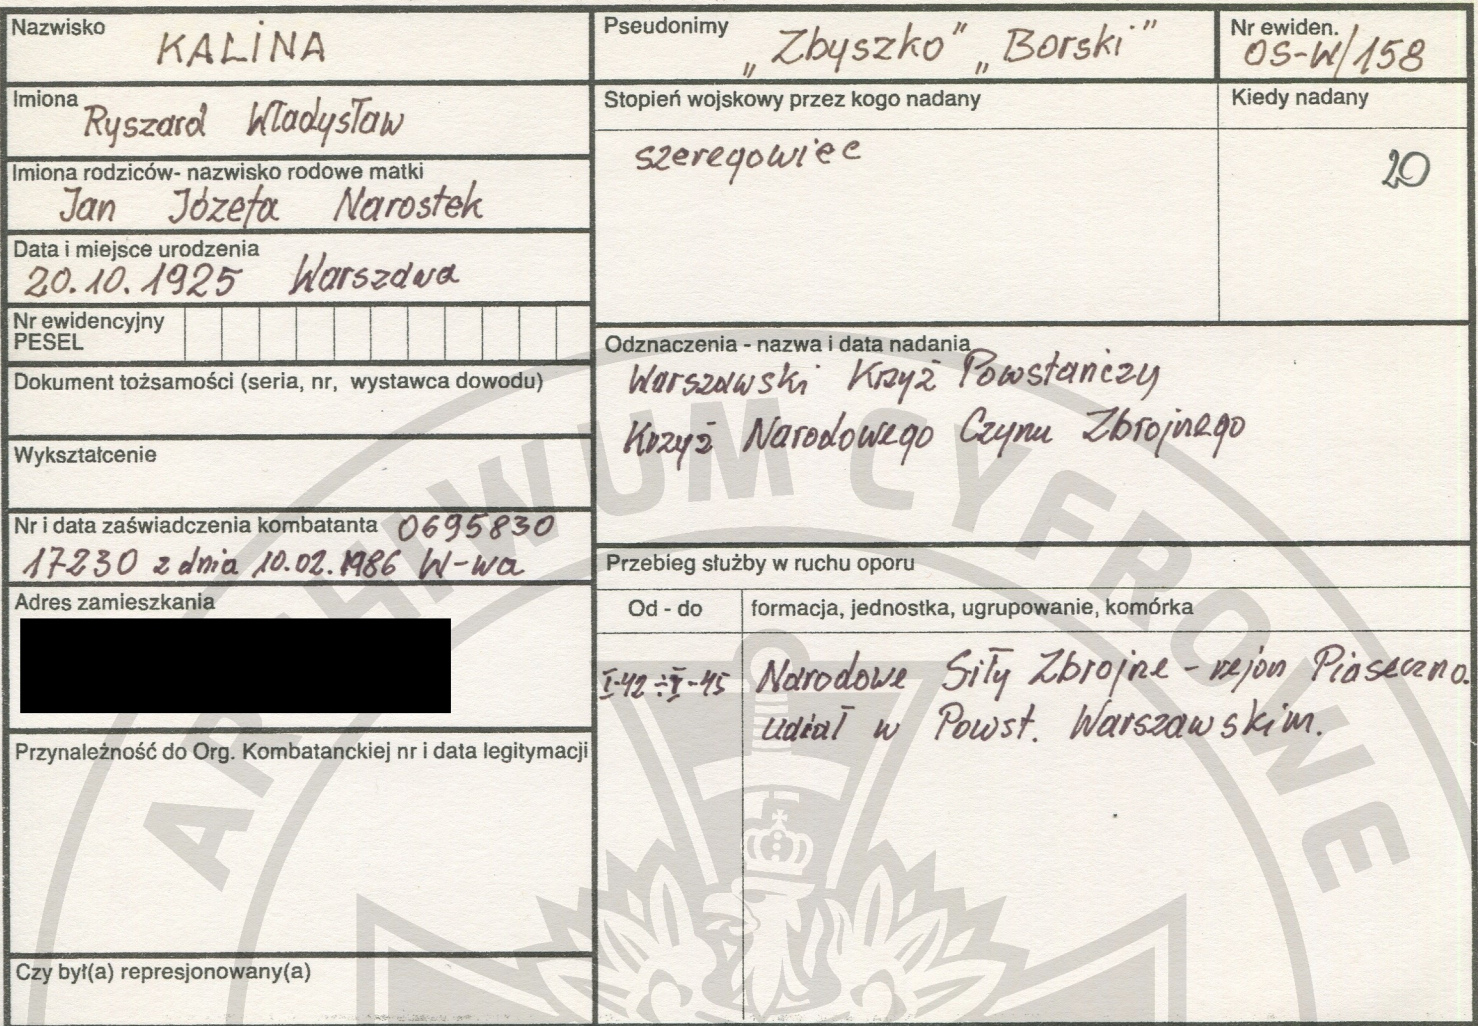 Nazwisko
KALINA
Imiona
Ryszard Władysław
Imiona rodziców- nazwisko rodowe matki
Jan Józefa Narostek
Data i miejsce urodzenia
20.10.1925 Warszawa
Nr ewidencyjny
PESEL
Dokument tożsamości (seria, nr, wystawca dowodu)
Wykształcenie
Nr i data zaświadczenia kombatanta 0695830
17230 z dnia 10.02.1986 W-wa
Adres zamieszkania
Przynależność do Org. Kombatanckiej nr i data legitymacji
Czy był(a) represjonowany(a)
Pseudonimy
„Zbyszko" „Borski"
Nr ewiden.
OS-W/158
Stopień wojskowy przez kogo nadany
Kiedy nadany
szeregowiec
20
Odznaczenia - nazwa i data nadania
Warszawski Krzyż Powstańczy
Krzyż Narodowego Czynu Zbrojnego
Przebieg służby w ruchu oporu
Od - do
formacja, jednostka, ugrupowanie, komórka
I-42 ÷ I-45 Narodowe Siły Zbrojne - rejon Piaseczno.
udział w Powst. Warszawskim.
ARCHIWUM CYFROWE